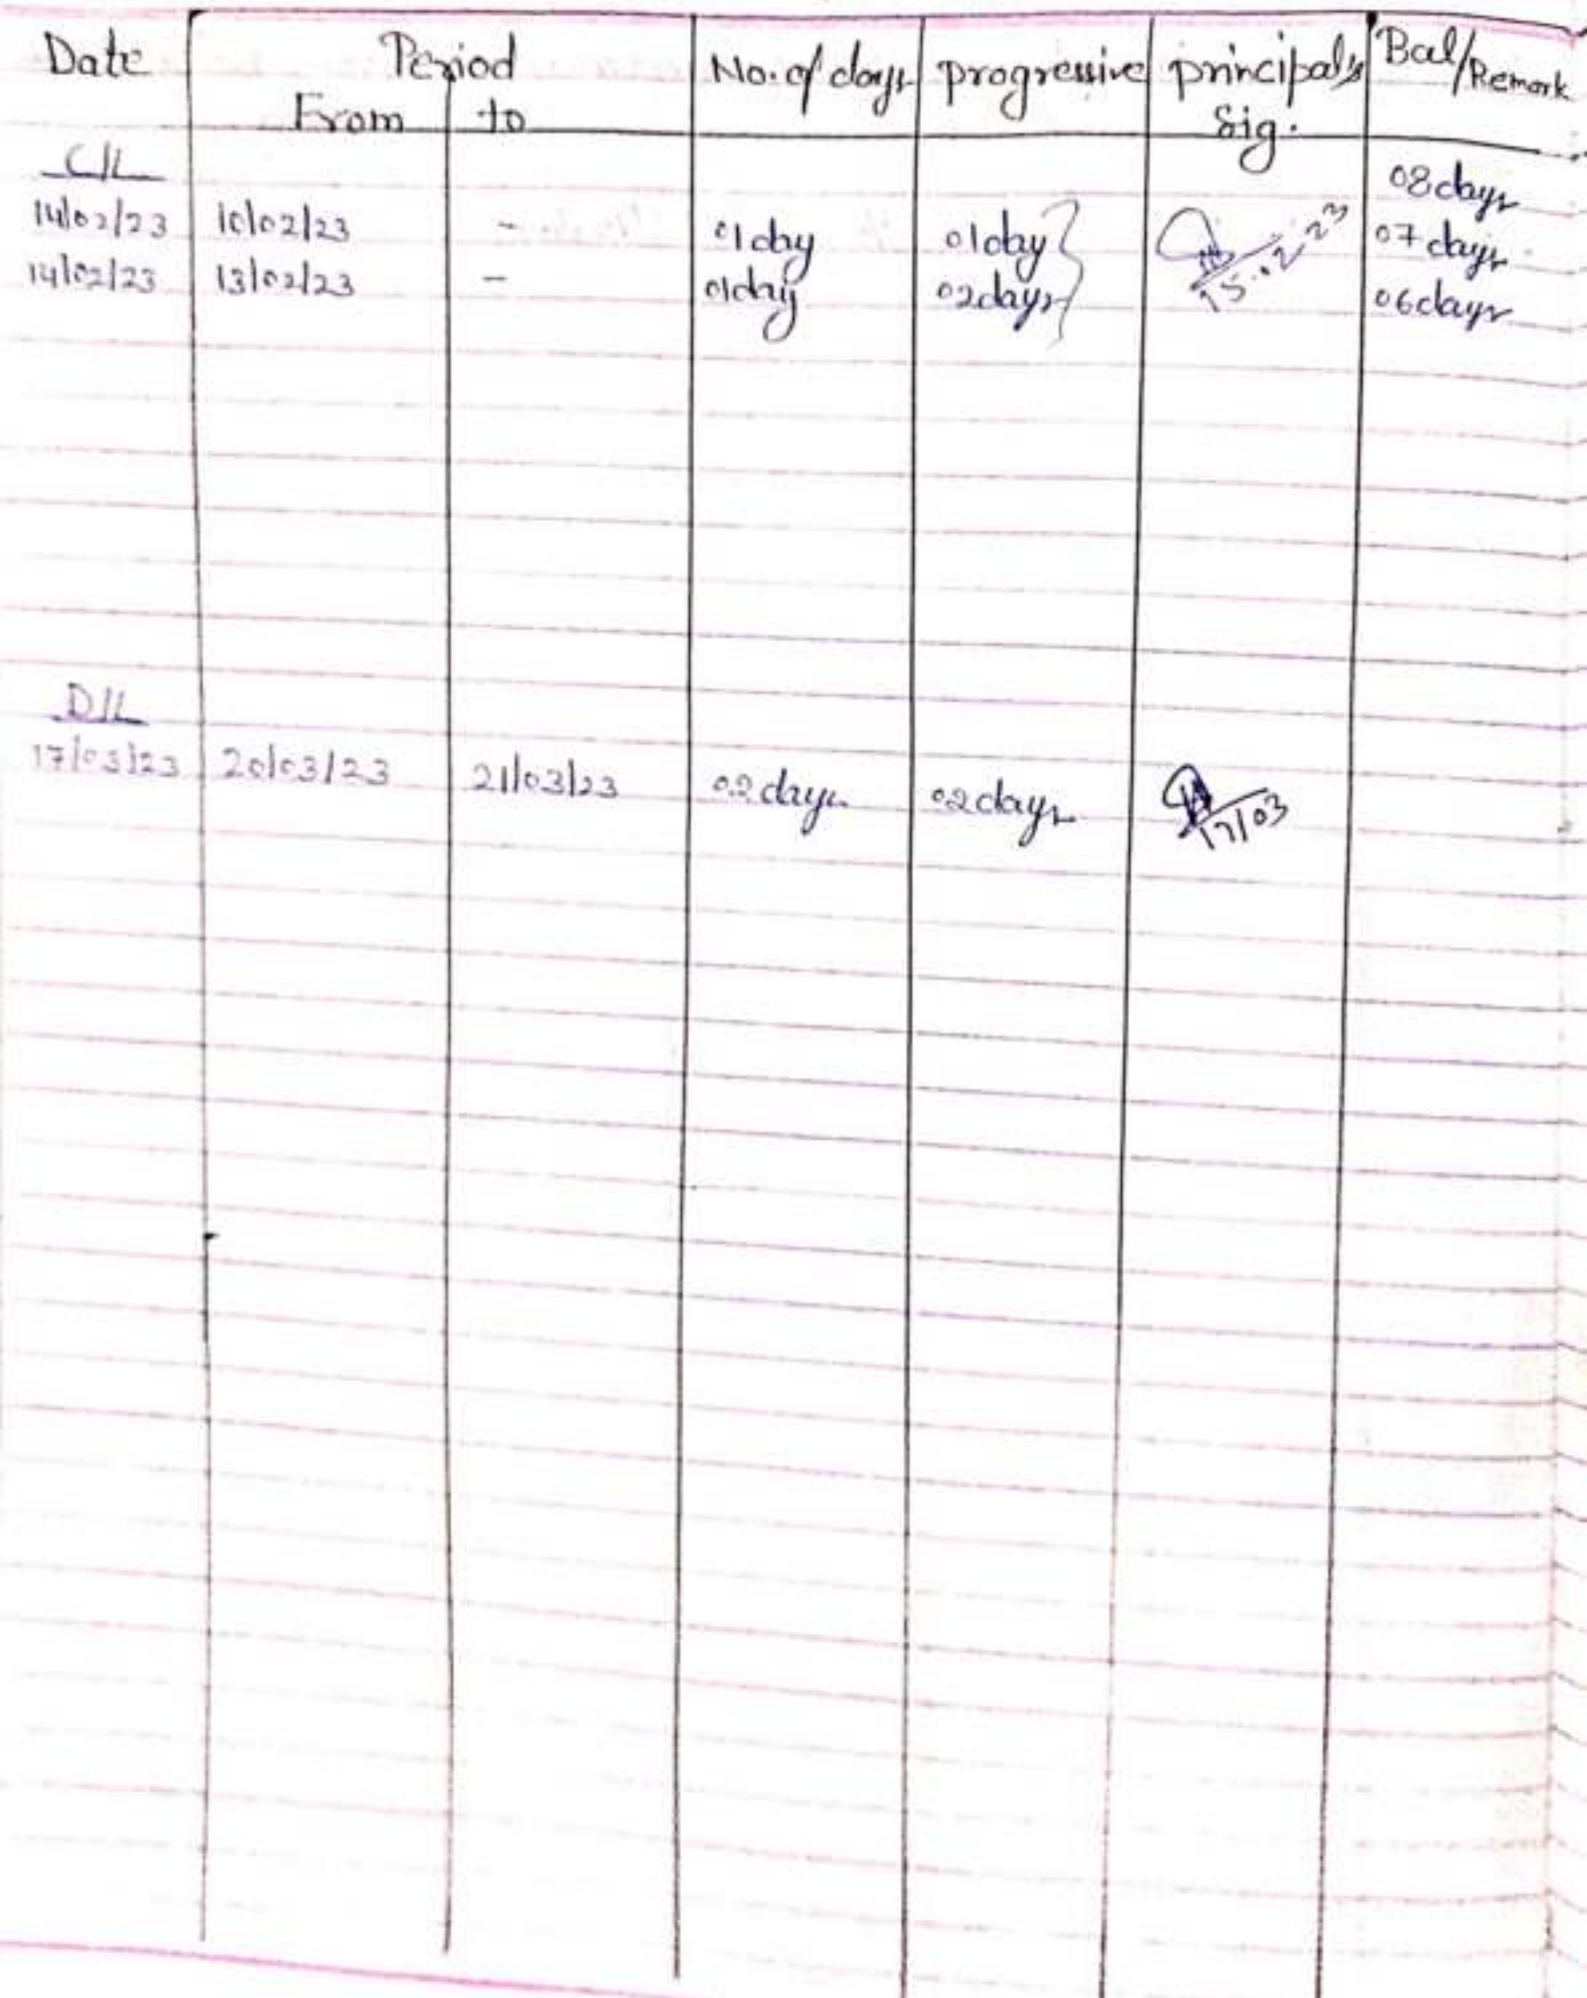 Date Period No. of days progressive principal's Bal/Remark
From to Sig.
C/L 08days
14/02/23 10/02/23 - 01day 01day 15.02.23 07days
14/02/23 13/02/23 - 01day 02days 06days
D/L
17/03/23 20/03/23 21/03/23 02days 02days 17/03